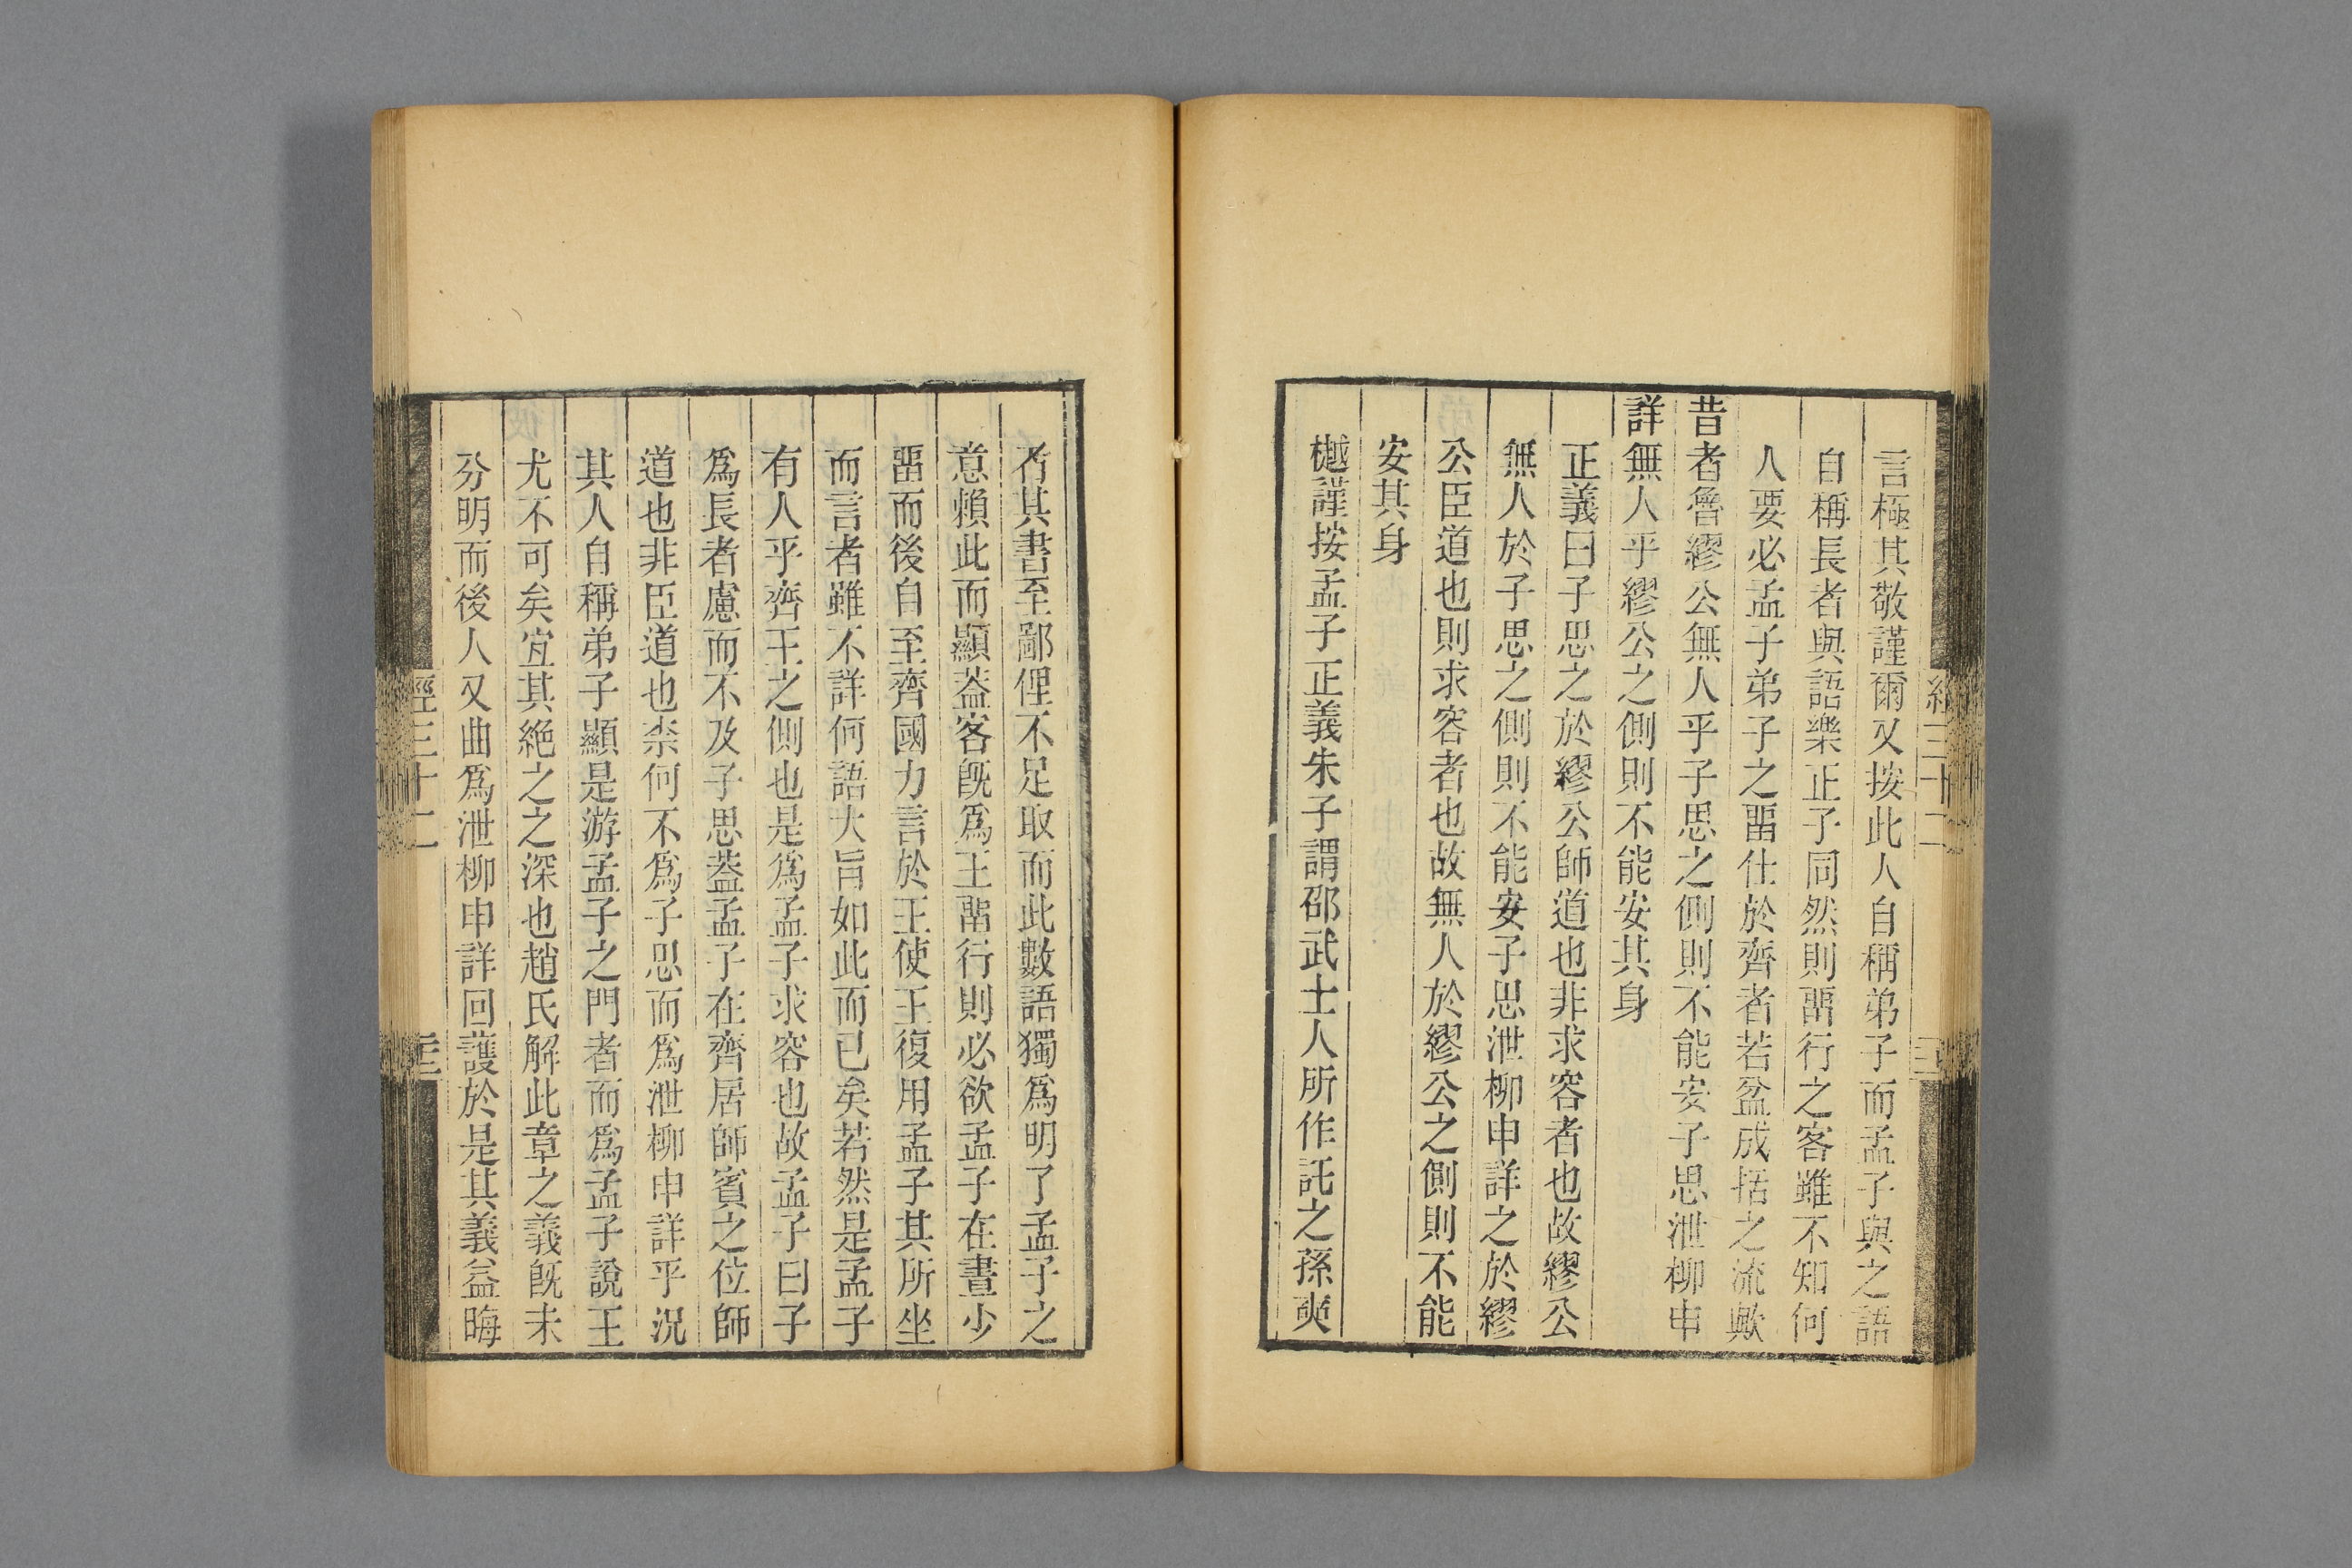 言極其敬謹爾又按此人自稱弟子而孟子與之語
自稱長者與語樂正子同然則畱行之客雖不知何
人要必孟子弟子之畱仕於齊者若盆成括之流歟
昔者魯繆公無人乎子思之側則不能安子思泄柳申
詳無人乎繆公之側則不能安其身
正義曰子思之於繆公師道也非求容者也故繆公
無人於子思之側則不能安子思泄柳申詳之於繆
公臣道也則求容者也故無人於繆公之側則不能
安其身
樾謹按孟子正義朱子謂邵武士人所作託之孫奭
者其書至鄙俚不足取而此數語獨爲明了孟子之
意賴此而顯葢客旣爲王畱行則必欲孟子在晝少
畱而後自至齊國力言於王使王復用孟子其所坐
而言者雖不詳何語大旨如此而已矣若然是孟子
有人乎齊王之側也是爲孟子求容也故孟子曰子
爲長者慮而不及子思葢孟子在齊居師賓之位師
道也非臣道也柰何不爲子思而爲泄柳申詳乎況
其人自稱弟子顯是游孟子之門者而爲孟子說王
尤不可矣宜其絶之之深也趙氏解此章之義旣未
分明而後人又曲爲泄柳申詳回護於是其義益晦
經三十二